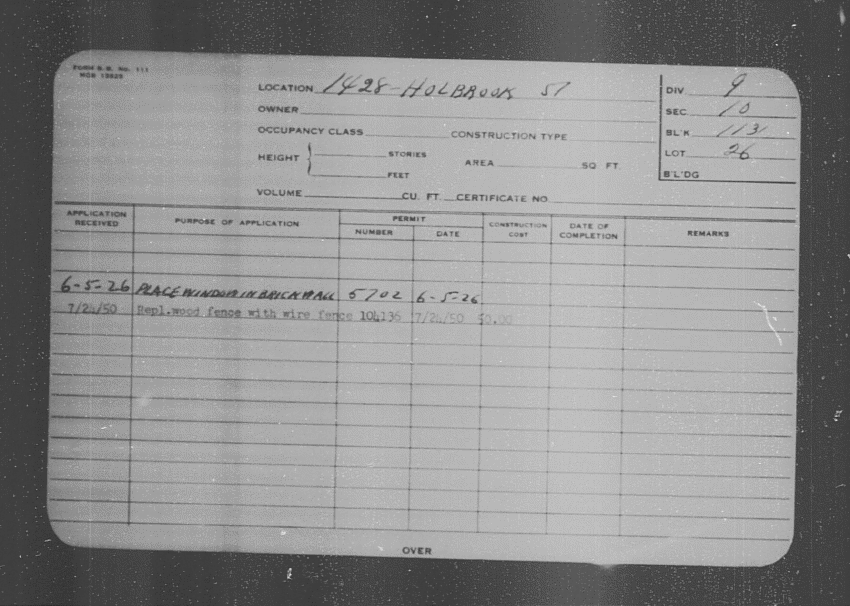 FORM B.B. No. 111
LOCATION 1428-HOLBROOK ST
DIV 9
OWNER
SEC 10
OCCUPANCY CLASS CONSTRUCTION TYPE
BL'K 113
HEIGHT STORIES
FEET
AREA SQ FT.
LOT 26
B'L'DG
VOLUME CU. FT. CERTIFICATE NO.
APPLICATION RECEIVED PURPOSE OF APPLICATION PERMIT NUMBER DATE CONSTRUCTION COST DATE OF COMPLETION REMARKS
6-5-26 PLACE WINDOW IN BRICK WALL 5702 6-5-26
7/24/50 Repl.wood fence with wire fence 104136 7/24/50 50.00
OVER